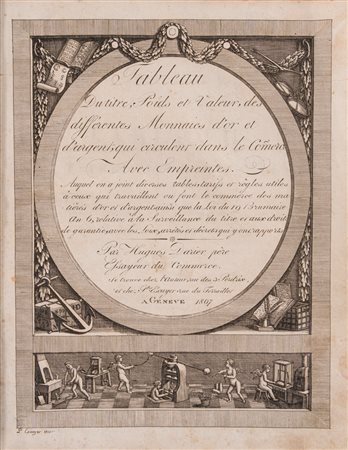 Tableau
Du titre, Poids et Valeur, des
différentes Monnaies d'or et
d'argent, qui circulent dans le Com̃erce
Avec Empreintes.
Auquel on a joint diverses tables, tarifs et règles utiles
à ceux qui travaillent ou font le commerce des ma
tières d'or et d'argent, ainsi que la Loi du 19 Brumaire
An 6, relative à la Surveillance du titre et aux droits
de garantie avec les Loix, arrêtés et décrets qui y ont rapport.
Par Hugues Darier père
Essayeur du Commerce.
Se trouve chez l'Auteur rue des
et chez Pre. Escuyer rue du
A GENEVE 1807
P. Escuyer